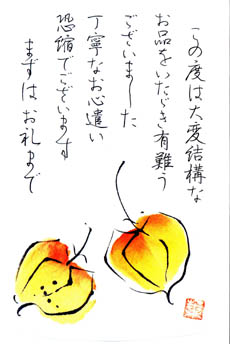 この度は大変結構な
お品をいただき有難う
ございました
丁寧なお心遣い
恐縮でございます
まずはお礼まで